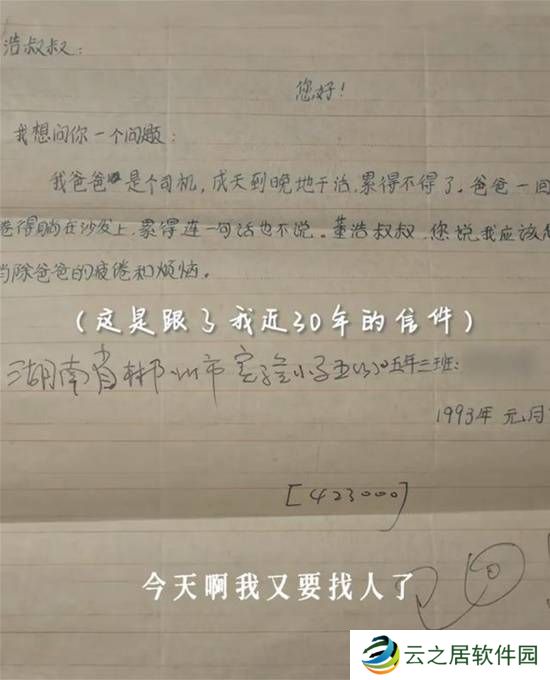 浩叔叔：
您好！
我想问你一个问题：
我爸爸是个司机，成天到晚地干活，累得不得了。爸爸一回
倦得躺在沙发上，累得连一句话也不说。董浩叔叔，您说我应该怎
消除爸爸的疲倦和烦恼。
（这是跟了我近30年的信件）
湖南省郴州市实验小学五(3)五年三班：
1993年 元月
[423000]
今天啊我又要找人了
云之居软件园